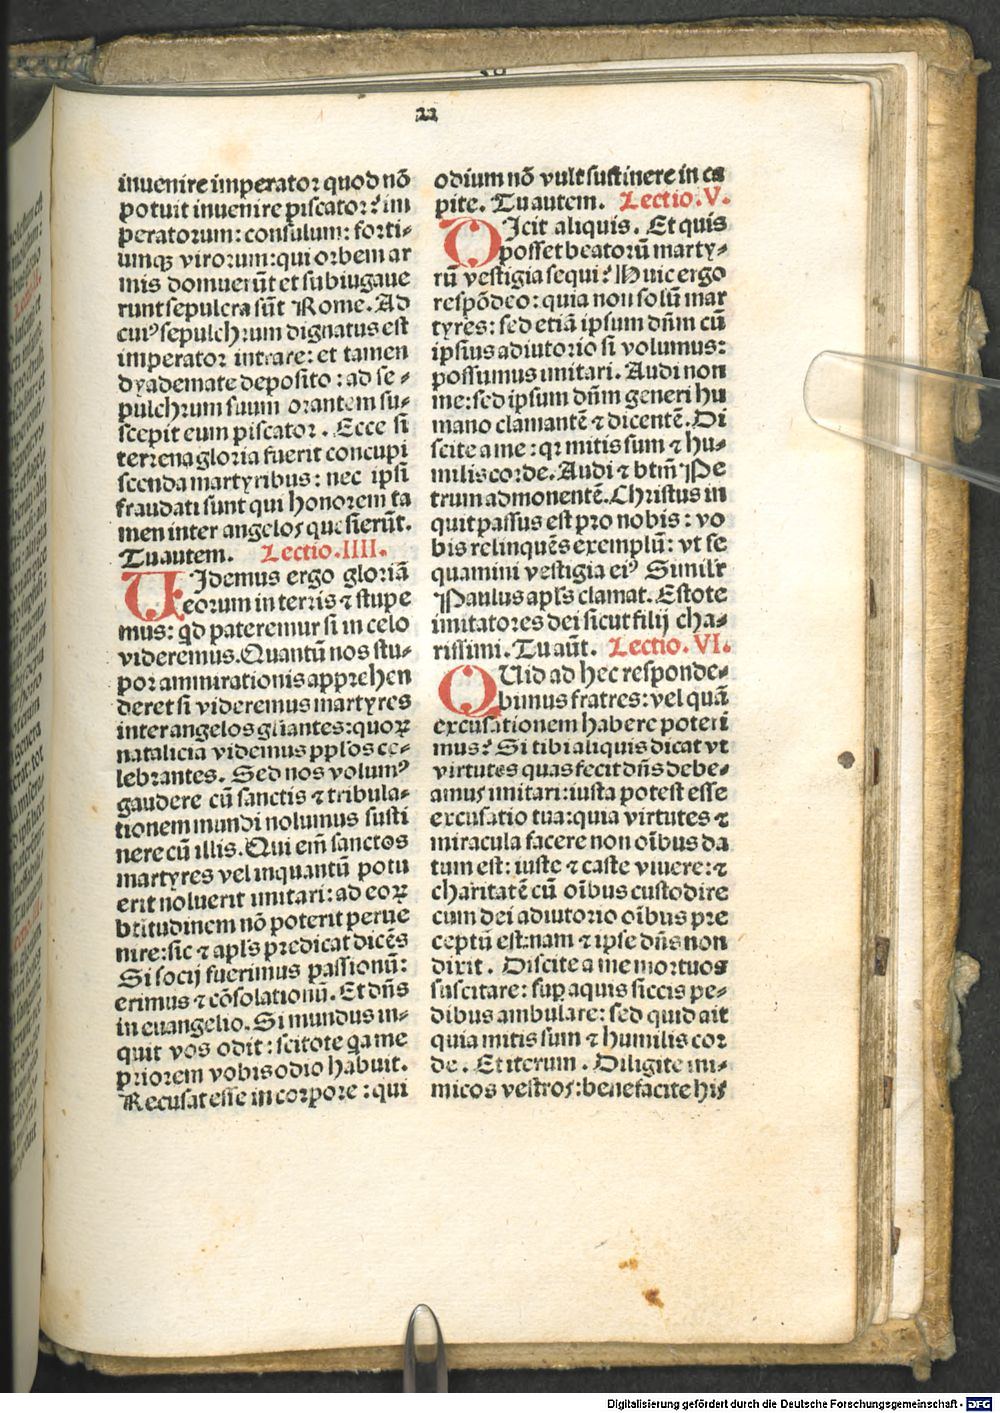 22
inuenire imperator quod nō
potuit inuenire piscator? im
peratorum: consulum: forti-
umqꝫ virorum: qui orbem ar
mis domuerūt et subiugaue
runt sepulcra sūt Rome. Ad
cuiꝰ sepulchrum dignatus est
imperator intrare: et tamen
dyademate deposito: ad se-
pulchrum suum orantem su-
scepit eum piscator. Ecce si
terrena gloria fuerit concupi
scenda martyribus: nec ipsi
fraudati sunt qui honorem ta
men inter angelos quesierūt.
Tu autem. Lectio. IIII.
UIdemus ergo gloriā
eorum in terris ⁊ stupe
mus: qd pateremur si in celo
videremus. Quantū nos stu-
por ammirationis apprehen
deret si videremus martyres
inter angelos glīantes: quoꝝ
natalicia videmus pplōs ce-
lebrantes. Sed nos volumꝰ
gaudere cū sanctis ⁊ tribula-
tionem mundi nolumus susti
nere cū illis. Qui em̄ sanctos
martyres vel inquantū potu
erit noluerit imitari: ad eoꝝ
btītudinem nō poterit perue
nire: sic ⁊ apl's predicat dicēs
Si socij fuerimus passionū:
erimus ⁊ cōsolationū. Et dn̄s
in euangelio. Si mundus in-
quit vos odit: scitote qa me
priorem vobis odio habuit.
Recusat esse in corpore: qui
odium nō vult sustinere in ca
pite. Tu autem. Lectio. V.
DIcit aliquis. Et quis
posset beatorū marty-
rū vestigia sequi? Huic ergo
respōdeo: quia non solū mar
tyres: sed etiā ipsum dn̄m cū
ipsius adiutorio si volumus:
possumus imitari. Audi non
me: sed ipsum dn̄m generi hu
mano clamantē ⁊ dicentē. Di
scite a me: qꝛ mitis sum ⁊ hu-
milis corde. Audi ⁊ btm̄ Pe
trum admonentē. Christus in
quit passus est pro nobis: vo
bis relinquēs exemplū: vt se
quamini vestigia eiꝰ Similr
Paulus apl's clamat. Estote
imitatores dei sicut filij cha-
rissimi. Tu aūt. Lectio. VI.
QUid ad hec responde-
bimus fratres: vel quā
excusationem habere poteri
mus? Si tibi aliquis dicat vt
virtutes quas fecit dn̄s debe-
amus imitari: iusta potest esse
excusatio tua: quia virtutes ⁊
miracula facere non oībus da
tum est: iuste ⁊ caste viuere: ⁊
charitatē cū oībus custodire
cum dei adiutorio oībus pre
ceptū est: nam ⁊ ipse dn̄s non
dixit. Discite a me mortuos
suscitare: sup aquis siccis pe-
dibus ambulare: sed quid ait
quia mitis sum ⁊ humilis cor
de. Et iterum. Diligite ini-
micos vestros: benefacite his
Digitalisierung gefördert durch die Deutsche Forschungsgemeinschaft - DFG